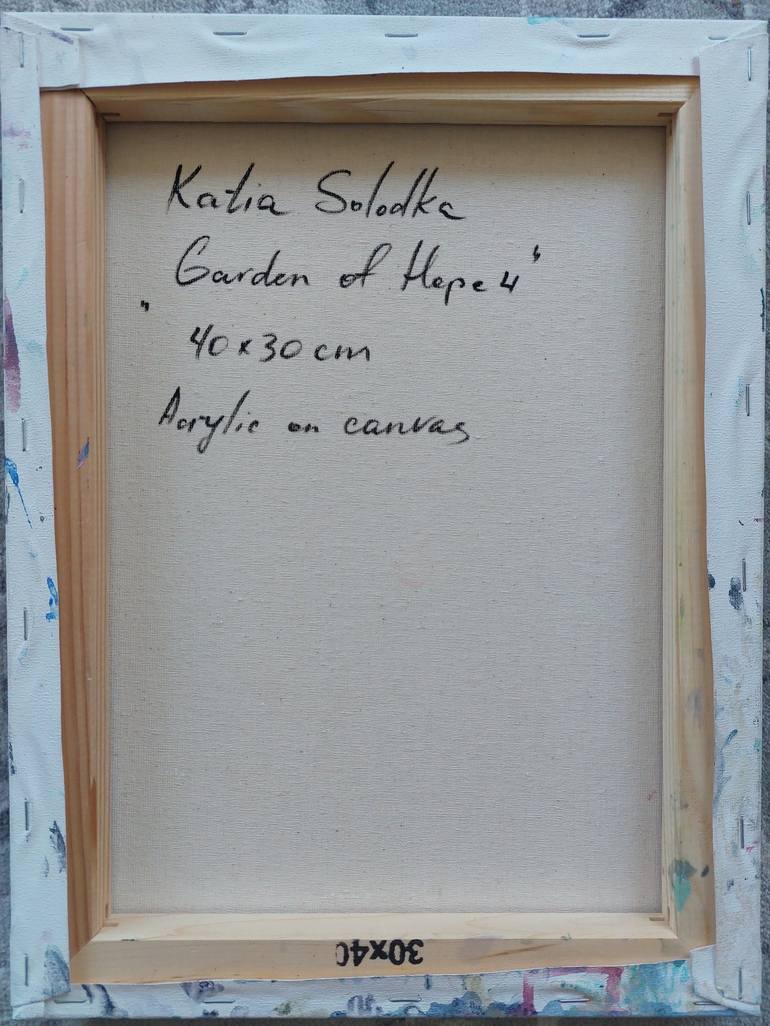 Katia Solodka
„Garden of Hope 4"
40x30 cm
Acrylic on canvas
30x40